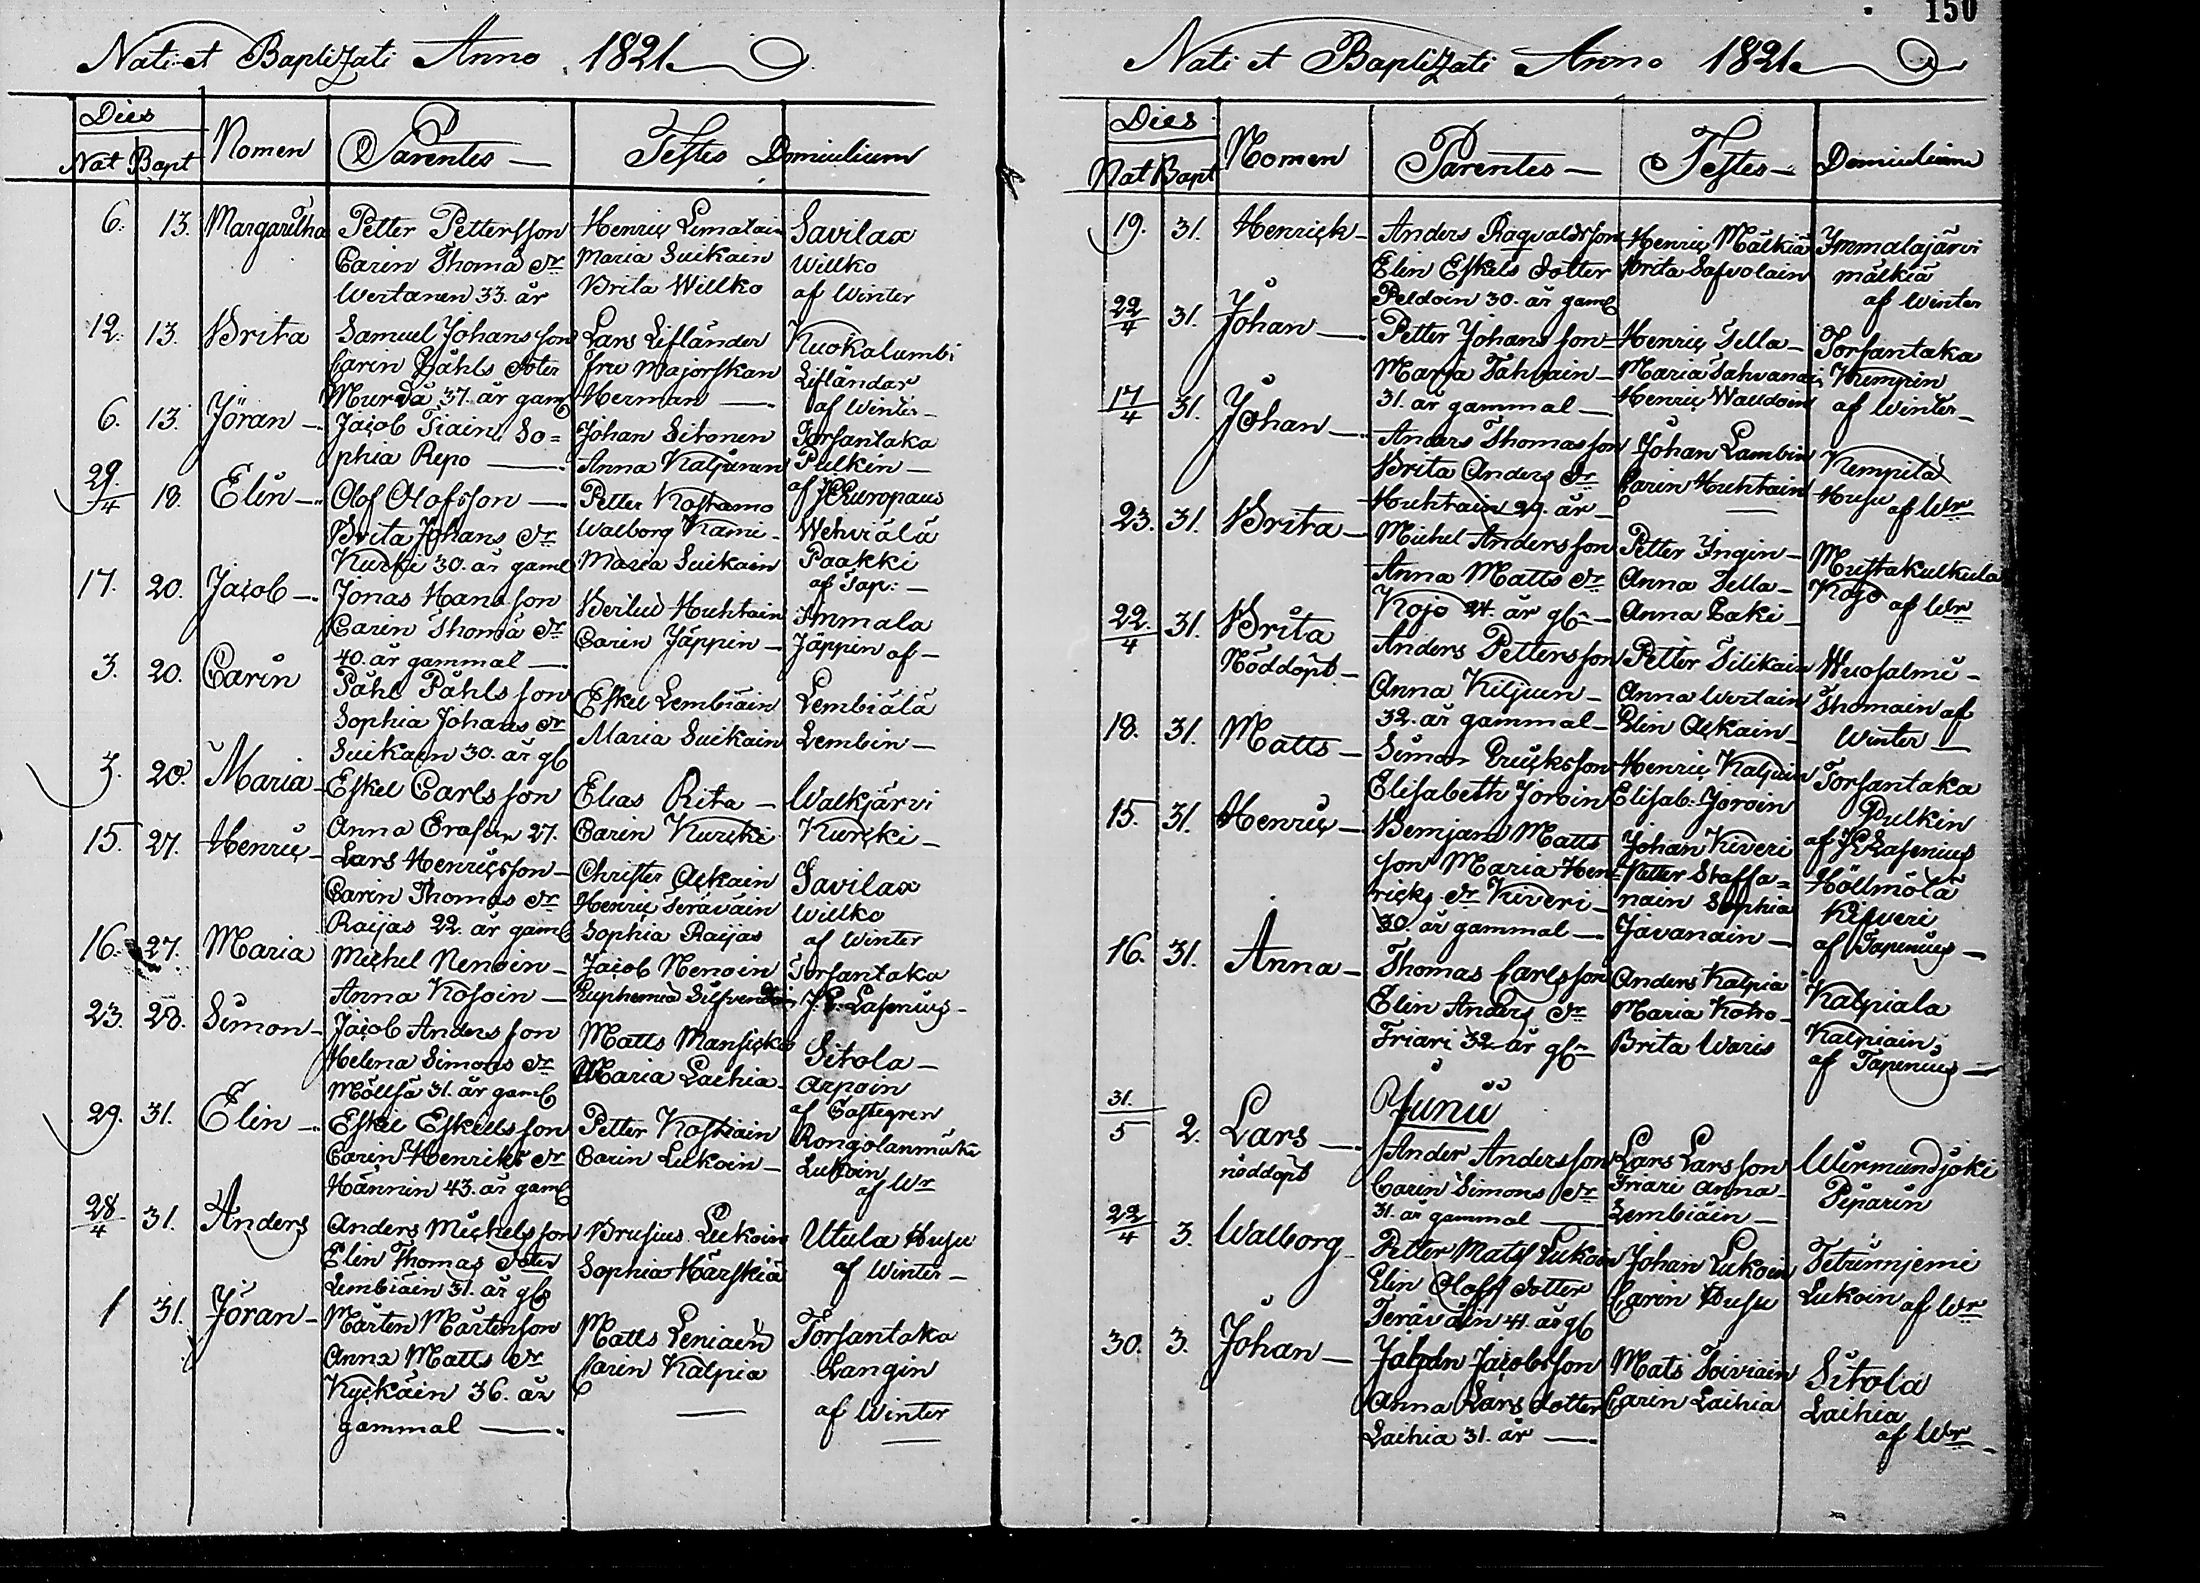 150
Nati et Baptizati Anno 1821.
Dies
Nat Bapt Nomen Parentes — Testes Domicilium
6. 13. Margaretha Petter Pettersson Henric Lematain Savilax
Carin Thomæ dr Maria Suikain Willko
Wertanen 33. år Brita Willko af Winter
12. 13. Brita Samuel Johansson Lars Lifländer Kuokalambi
Carin Påhls doter fru Majorskan Lifländar
Murda 37. år gaml Herman — af Winter —
6. 13. Jöran — Jacob Tiain, So= Johan Sitonen Torsantaka
phia Repo — Anna Kaljunen Pulkin —
29/4 18. Elin — Olof Olofsson — Petter Kostamo af J Europæus
Brita Johans dr Walborg Kami — Wehviälä
Kurki 30. år gaml Maria Suikain Paakki
af Tap: —
17. 20. Jacob — Jonas Hansson Berlud Huhtain Immala
Carin Thomæ dr Carin Jäppin — Jäppin af —
40. år gammal —
3. 20. Carin Påhl Påhlsson Eskel Lembiäin Lembiälä
Sophia Johans dr Maria Suikain Lembin —
Suikain 30. år gl
3. 20. Maria — Eskel Carlsson Elias Rita — Walkjärvi
Anna 27. Carin Kurcki Kurcki —
15. 27. Henric — Lars Henricsson — Christer Ackain Savilax
Carin Thomas dr Henric Teräväin Willko
Raijas 22. år gaml Sophia Raijas af Winter
16. 27. Maria Michel Nenoin — Jacob Nenoin Torsantaka
Anna Kosoin — Euphemia J. E. Lasenius —
23. 28. Simon — Jacob Andersson Matts Mansicka Sitola —
Helena Simons dr Maria Laihia — Arpoin
Möllsä 31. år gaml af Castegren
29. 31. Elin — Eskel Eskillsson Petter Kostiain Rongolanmäki
Carin Henriks dr Carin Lukoin — Lukoin
Hännin 43. år gaml af Wr
28/4 31. Anders Anders Michelsson Brusius Lukoin Utula Husu
Elin Thomas doter Sophia Härskiä af Winter —
Lembiäin 31. år gl
1 31. Jöran — Mårten Mårtensson Matts Leniäin Torsantaka
Anna Matts dr Carin Kalpia Langin
Kyckäin 36. år — af Winter
gammal —
Nati et Baptizati Anno 1821.
Dies
Nat Bapt Nomen Parentes — Testes — Domicilium
19. 31. Henrick — Anders Ragvaldsson Henric Mälkiä Immalajärvi
Elin Eskels dotter Brita Safvolain mälkiä
Peldoin 30. år gaml af Winter
22/4 31. Johan — Petter Johansson Henric Tella — Torsantaka
Maria Tahvain — Maria Tahvanain Kempin
31. år gammal — Henric Wattoin af Winter —
17/4 31. Johan — Anders Thomasson Johan Lambin Kempilä
Brita Anders dr Carin Huhtain Husu af Wr
Huhtain 29. år —
23. 31. Brita — Michel Andersson Petter Ingin — Mustakulkula
Anna Matts dr Anna Tella — Kojo af Wr
Kojo 24. år gl — Anna Laki —
22/4 31. Brita Anders Pettersson Petter Tilikain Wuosalmi —
Nöddöpt — Anna Kiljuen — Anna Wertain Thomain af
32. år gammal — Elin Ackain — Winter —
18. 31. Matts — Simon Ericksson Henric Kaljuin Torsantaka
Elisabeth Joroin Elisab: Joroin Pulkin
af J E Lasenius
15. 31. Henric — Bemjam Matts Johan Kiveri Höllmölä
son Maria Hen= Petter Staffa= Kifveri
ricks dr Kiveri — nain Sophia af Tapenius —
30. år gammal — Javanain —
16. 31. Anna — Thomas Carlsson Anders Kalpia Kalpiala
Elin Anders dr Maria Koho — Kalpiain
Friari 32 år gl — Brita Waris af Tapenius —
Junii
31/5 2. Lars — Ander Andersson Lars Larsson Wirmundjoki
nöddöpt Carin Simons dr Friari Anna Piparin
31. år gammal — Lembiäin —
22/4 3. Walborg — Petter Mats Lukoin Johan Lukoin Tetrinnjemi
Elin Olofs dotter Carin Husu Lukoin af Wr
Teräväin 41. år gl
30. 3. Johan — Johan Jacobsson Mats Toiviain Sitola
Anna Lars dotter Carin Laihia Laihia
Laihia 31. år — af Wr —